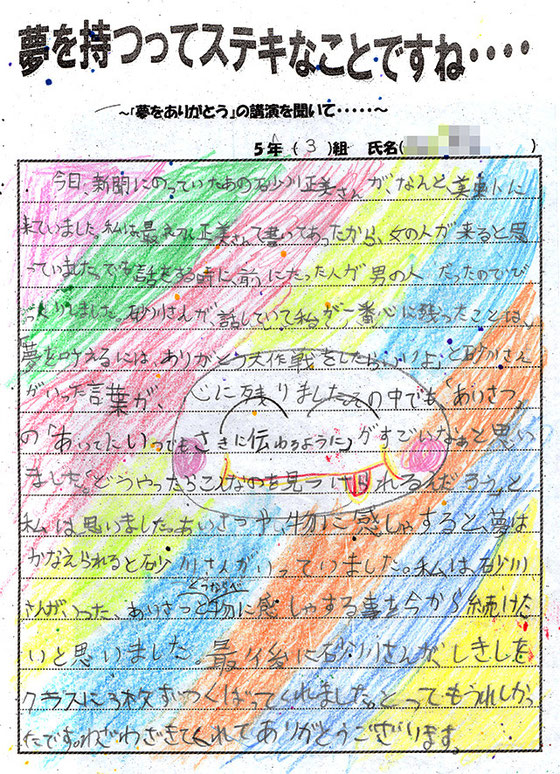 夢を持つってステキなことですね・・・・
～「夢をありがとう」の講演を聞いて・・・・・～
5年(3)組 氏名(
今日、新聞にのっていたあの砂川正美さんが、なんと、美東小に
来ていました。私は最初、正美さんて書いてあったから、女の人が来ると思
っていました。でも話をする時に、前にたった人が男の人だったのでび
っくりしました。砂川さんが、話していて私が一番心に残ったことは、
夢を叶えるには、ありがとう大作戦をしたらいいよ、と砂川さん
がいった言葉が、心に残りました。その中でも「あいさつ」
の「あいてにいつでもさきに伝わるように」がすごいなぁと思い
ました。「どうやったらこんなのを見つけられるんだろう」と
私は思いました。あいさつや、物に感しゃすると、夢は
かなえられると砂川さんがいっていました。私は、砂川
さんがいった、あいさつと物に感しゃする事を今から続けた
いと思いました。最後に砂川さんが、しきしを
クラスに3枚ずつくばってくれました。とってもうれしかっ
たです。わざわざきてくれてありがとうございます。